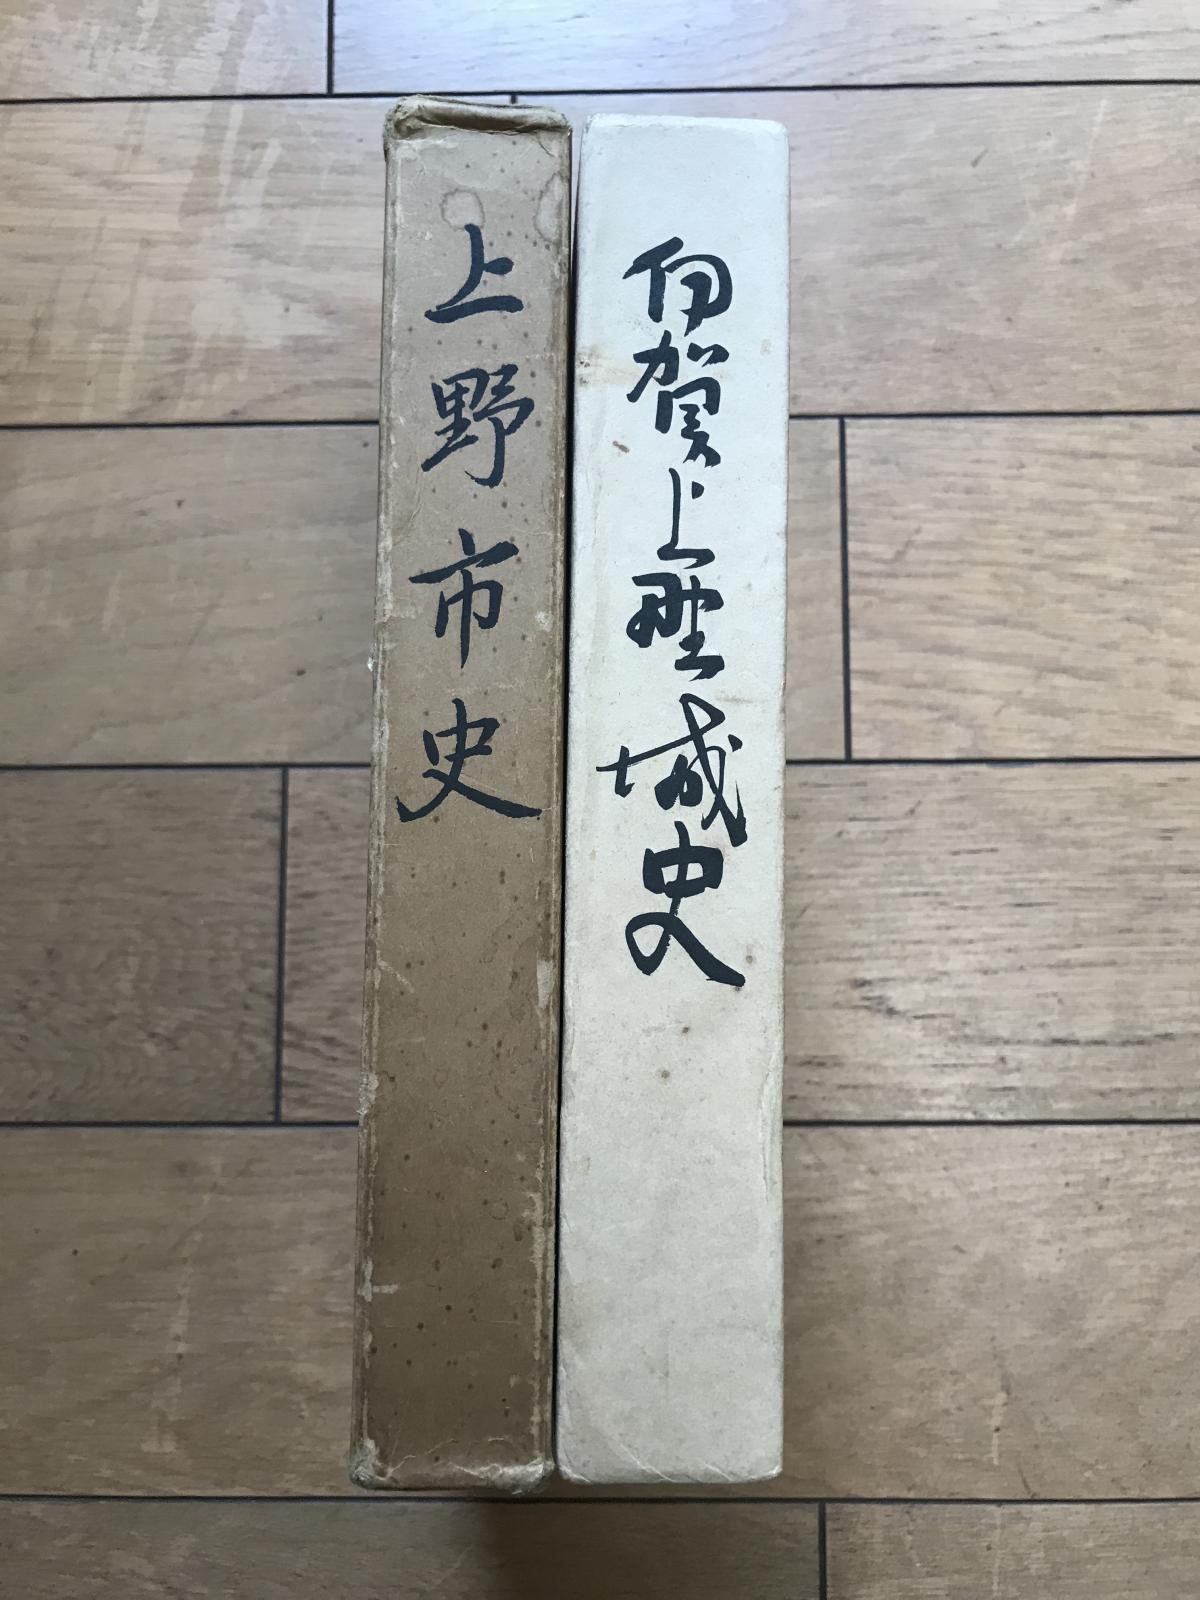 上野市史
伊賀上野城史